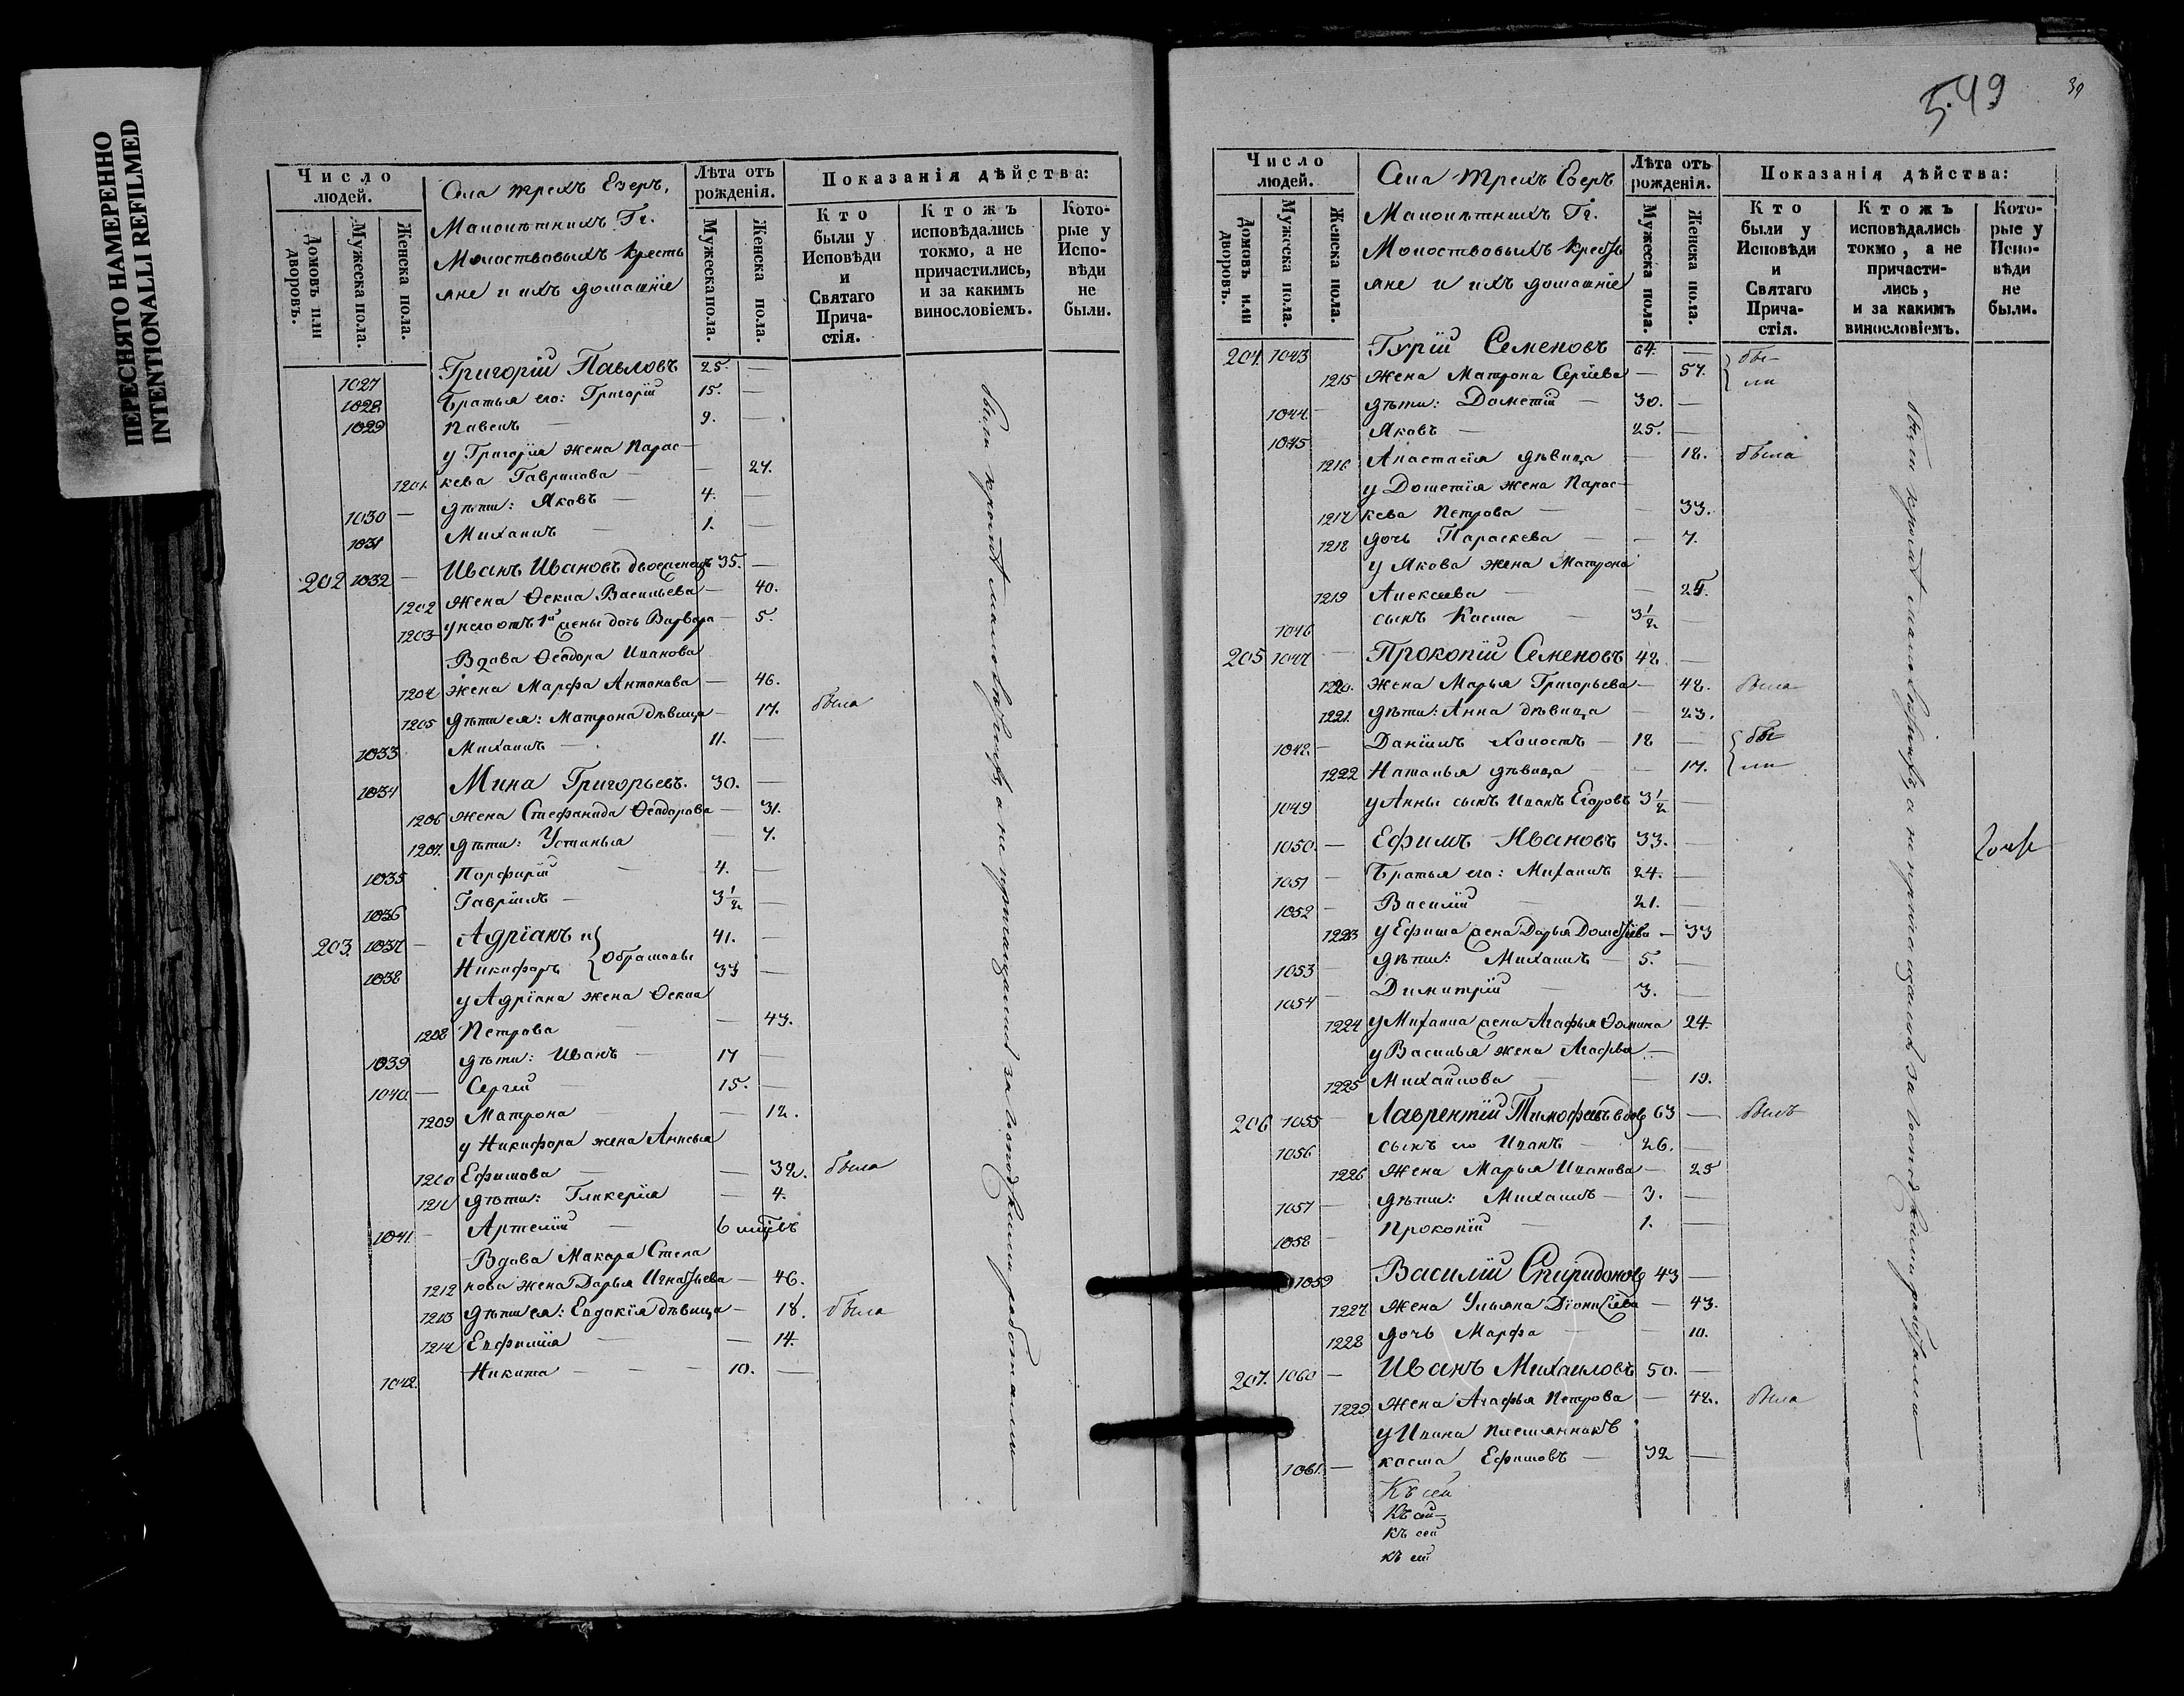 ПЕРЕСНЯТО НАМЕРЕННО
INTENTIONALLI REFILMED
Число людей.
Домовъ или дворовъ.
Мужеска пола.
Женска пола.
Села трехъ Езеръ,
Гг.
кресть
яне и ихъ домашніе
Лѣта отъ рожденія.
Мужеска пола.
Женска пола.
Показанія дѣйства:
Кто были у Исповѣди и Святаго Прича-стія.
Ктожъ исповѣдались токмо, а не причастились, и за какимъ винословіемъ.
Кото-рые у Испо-вѣди не были.
1027 Григорій Павловъ 25. —
1028 Братья его: Григорій 15. —
1029 Павелъ — 9. —
у Григорія жена Парас-
1201. кева Гаврилова — — 27.
1030 — дѣти: Яковъ — 4. —
1031 Михаилъ — 1. —
202 1032 — Иванъ Ивановъ двоеженецъ 35. —
1202 жена Ѳекла Васильева — 40.
1203 у него отъ 1й жены дочь Варвара — 5.
Вдова Ѳеодора Иванова
1204 жена Марфа Антонова — 46.
1205 дѣти ея: Матрона дѣвица — 17. была
1033 Михаилъ — 11. —
1034 Мина Григорьевъ. 30. —
1206 жена Стефанида Ѳеодорова — 31.
1207. дѣти: Устинья — 7.
1035 Порфирій — 4. —
1036 Гавріилъ — 3 1/2 —
203. 1037 — Адріанъ и 41. —
1038 Никифоръ 33 —
у Адріана жена Ѳекла
1208 Петрова — — 43.
1039 дѣти: Иванъ — 17 —
1040 — Сергей — 15. —
1209 Матрона — — 12.
у Никифора жена Анисья
1210 Ефимова — — 32. была
1211 дѣти: Гликерія — 4.
1041. — Артемій — 6 мѣсцвъ
Вдова Макара Степа
1212 нова жена Дарья Игнатьева — 46.
1213 дѣти ея: Евдокія дѣвица — 18. была
1214 Евфимія — — 14.
1042. Никита — — — 10. —
были кромѣ малолѣтнихъ, а не причащались за господскими работами
5.49
39
Число людей.
Домовъ или дворовъ.
Мужеска пола.
Женска пола.
Села Трехъ Езеръ
Гг.
яне и ихъ домашніе
Лѣта отъ рожденія.
Мужеска пола.
Женска пола.
Показанія дѣйства:
Кто были у Исповѣди и Святаго Прича-стія.
Ктожъ исповѣдались токмо, а не причасти-лись, и за какимъ винословіемъ.
Кото-рые у Испо-вѣди не были.
204. 1043 Гурій Семеновъ 64. — бы-
1215 жена Матрона Сергіева — 57. ли
1044. — дѣти: Дометій — 30. —
1045 Яковъ — 25. —
1216 Анастасія дѣвица — 18. была
у Дометія жена Парас-
1217 кева Петрова — — 33.
1218 дочь Параскева — — 7.
у Якова жена Матрона
1219 Алексеева — —
1046 сынъ Косма — 3 1/2 —
205 1047 — Прокопій Семеновъ 48. —
1220. жена Марья Григорьева — 48. была
1221. дѣти: Анна дѣвица — 23.
1048. — Даніилъ холостъ — 18 — бы-
1222 Наталья дѣвица — — 17. ли
1049 у Анны сынъ Иванъ Егоровъ 3 1/2 —
1050. — Ефимъ Ивановъ 33. —
1051 — Братья его: Михаилъ 24. —
1052 — Василій — 21. —
1223 у Ефима жена Дарья — 33
1053 — дѣти: Михаилъ — 5. —
1054 — Димитрій — 3. —
1224 у Михаила жена Агафья Ѳомина 24.
у Василья жена Агафья —
1225 Михайлова — — 19.
206 1055 — Лаврентій Тимофеевъ вдовъ 63 — былъ
1056 сынъ его Иванъ — 26. —
1226 жена Марья Иванова — 25
1057 — дѣти: Михаилъ — 3. —
1058 — Прокопій — 1. —
1059 Василій Спиридоновъ 43 —
1227 жена Ульяна Діонисіева — 43.
1228 дочь Марфа — — 10.
207. 1060 — Иванъ Михаиловъ 50. —
1229 жена Агафья Петрова — 48. была
у Ивана племянникъ
1061. — Косма Ефимовъ — 32 —
Къ сей
Къ сей
къ сей
къ сей
были кромѣ малолѣтнихъ, а не причащались за господскими работами